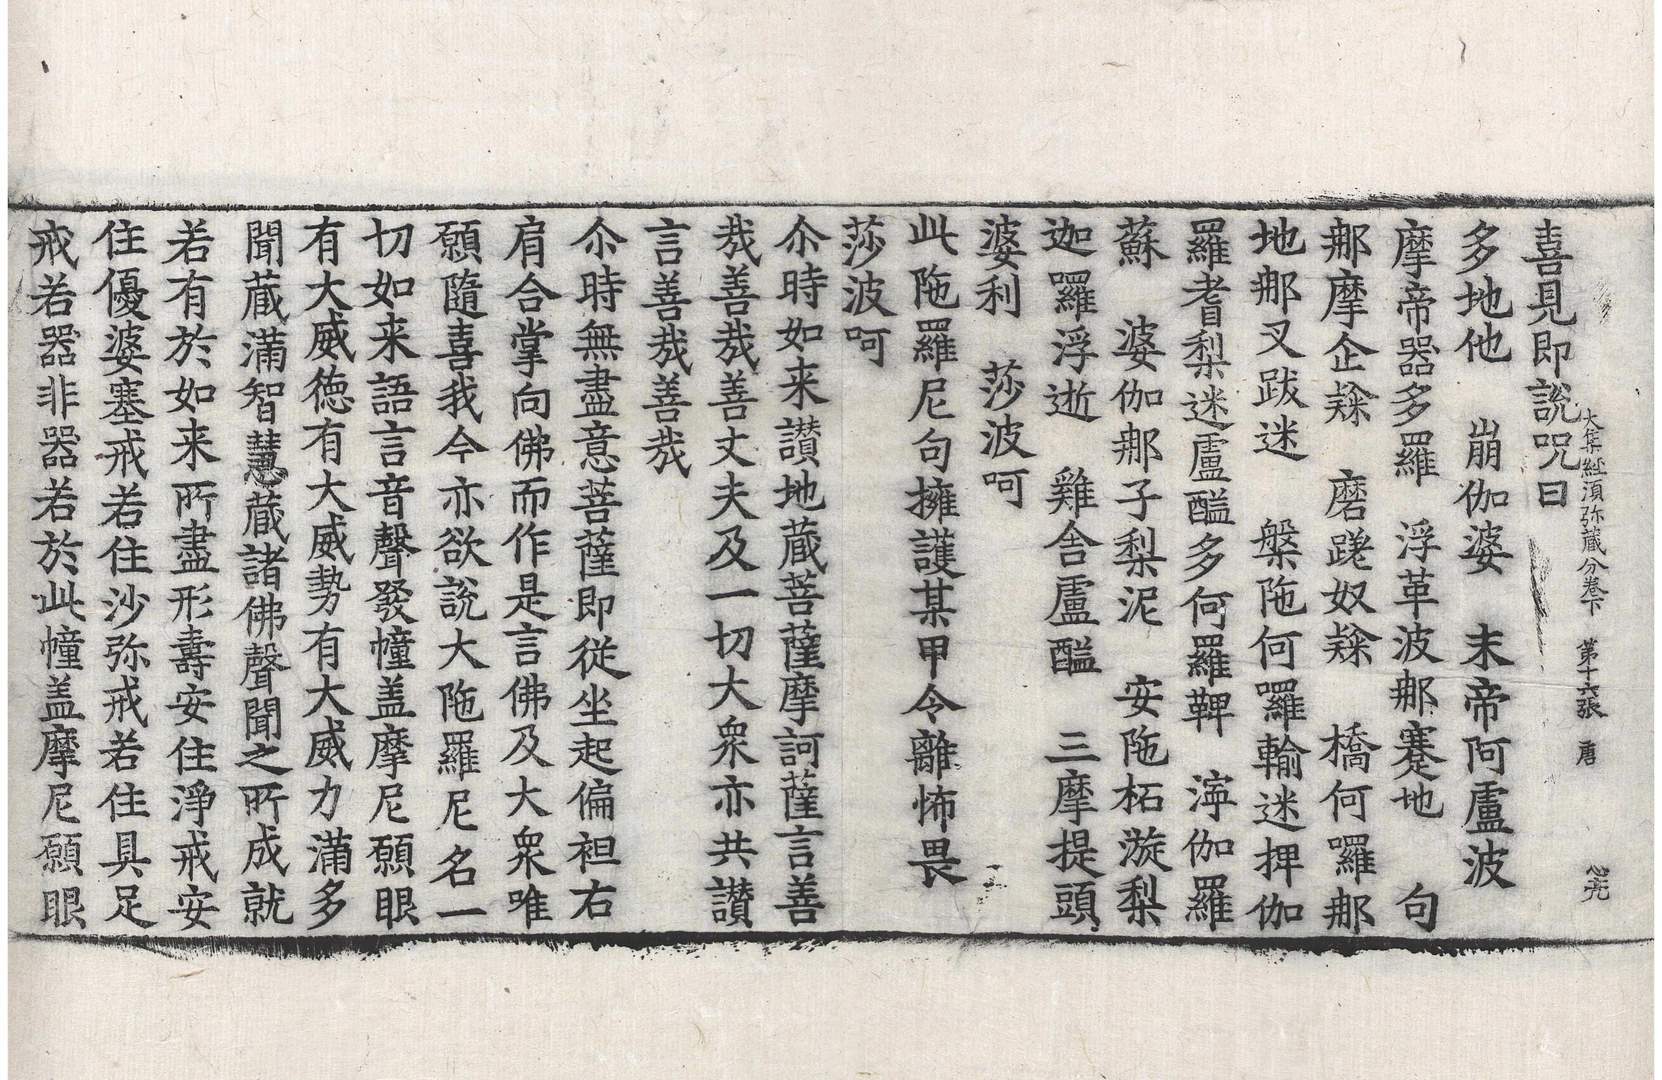 大集經須弥藏分卷下　第十六張　唐
喜見即說呪曰
多地他　崩伽婆　末帝阿盧波
摩帝器多羅　浮革波那蹇地　句
那摩企䅌　磨蹉奴䅌　橋何囉那
地那叉跋迷　槃陁何囉輸迷捭伽
羅耆梨迷盧醯多何羅鞞　渧伽羅
蘇　婆伽那子梨泥　安陁柘漩梨
迦囉浮逝　雞舎盧醯　三摩提頭
婆利　莎波呵
此陁羅尼句擁護某甲令離怖畏
莎波呵
尒時如来讃地蔵菩薩摩訶薩言善
㢤善㢤善丈夫及一切大衆亦共讃
言善㢤善㢤
尒時無盡意菩薩即從坐起偏袒右
肩合掌向佛而作是言佛及大衆唯
願隨喜我今亦欲說大陁羅尼名一
切如来語言音聲發幢盖摩尼願眼
有大威徳有大威勢有大威力滿多
聞蔵滿智慧蔵諸佛聲聞之所成就
若有於如来所盡形壽安住淨戒安
住優婆塞戒若住沙弥戒若住具足
戒若器非器若於此幢盖摩尼願眼